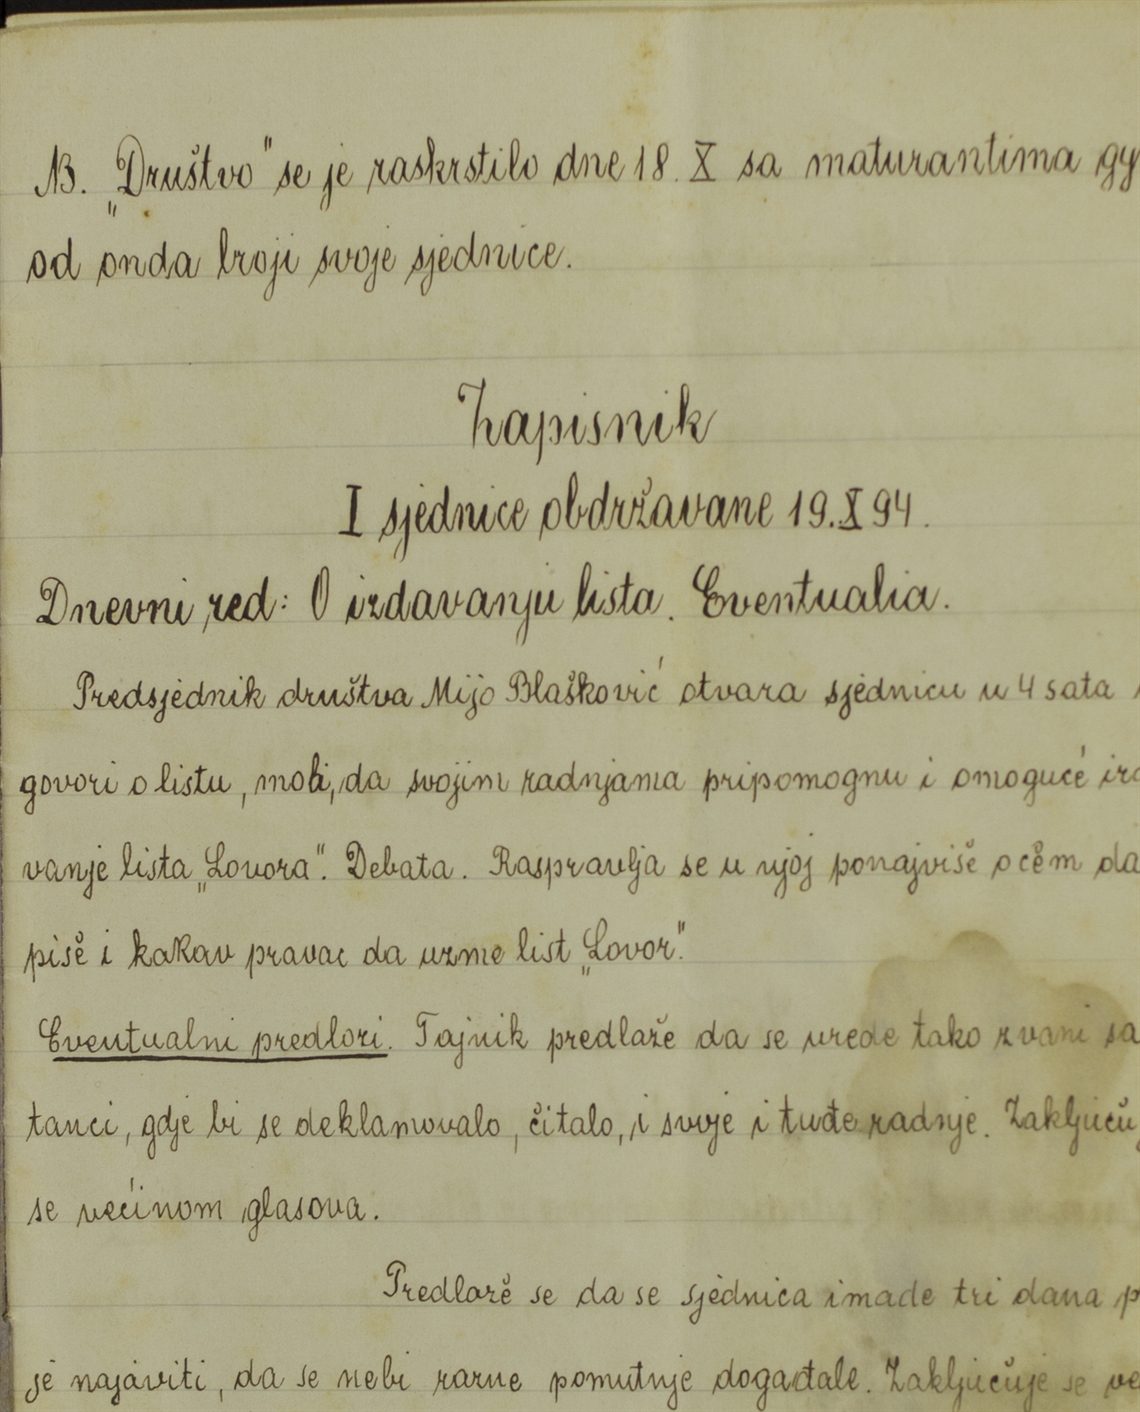 NB. „Društvo" se je raskrstilo dne 18. X sa maturantima gy
od onda broji svoje sjednice.
Zapisnik
I sjednice obdržavane 19. X 94.
Dnevni red: O izdavanju lista. Eventualia.
Predsjednik društva Mijo Blašković otvara sjednicu u 4 sata
govori o listu, moli, da svojim radnjama pripomognu i omoguće izd
vanje lista „Lovora". Debata. Raspravlja se u njoj ponajviše o čem da
piše i kakav pravac da uzme list „Lovor."
Eventualni predlozi. Tajnik predlaže da se urede tako zvani sa
tanci, gdje bi se deklamovalo, čitalo, i svoje i tuđe radnje. Zaključuj
se većinom glasova.
Predlaže se da se sjednica imade tri dana p
je najaviti, da se nebi razne pomutnje događale. Zaključuje se ve